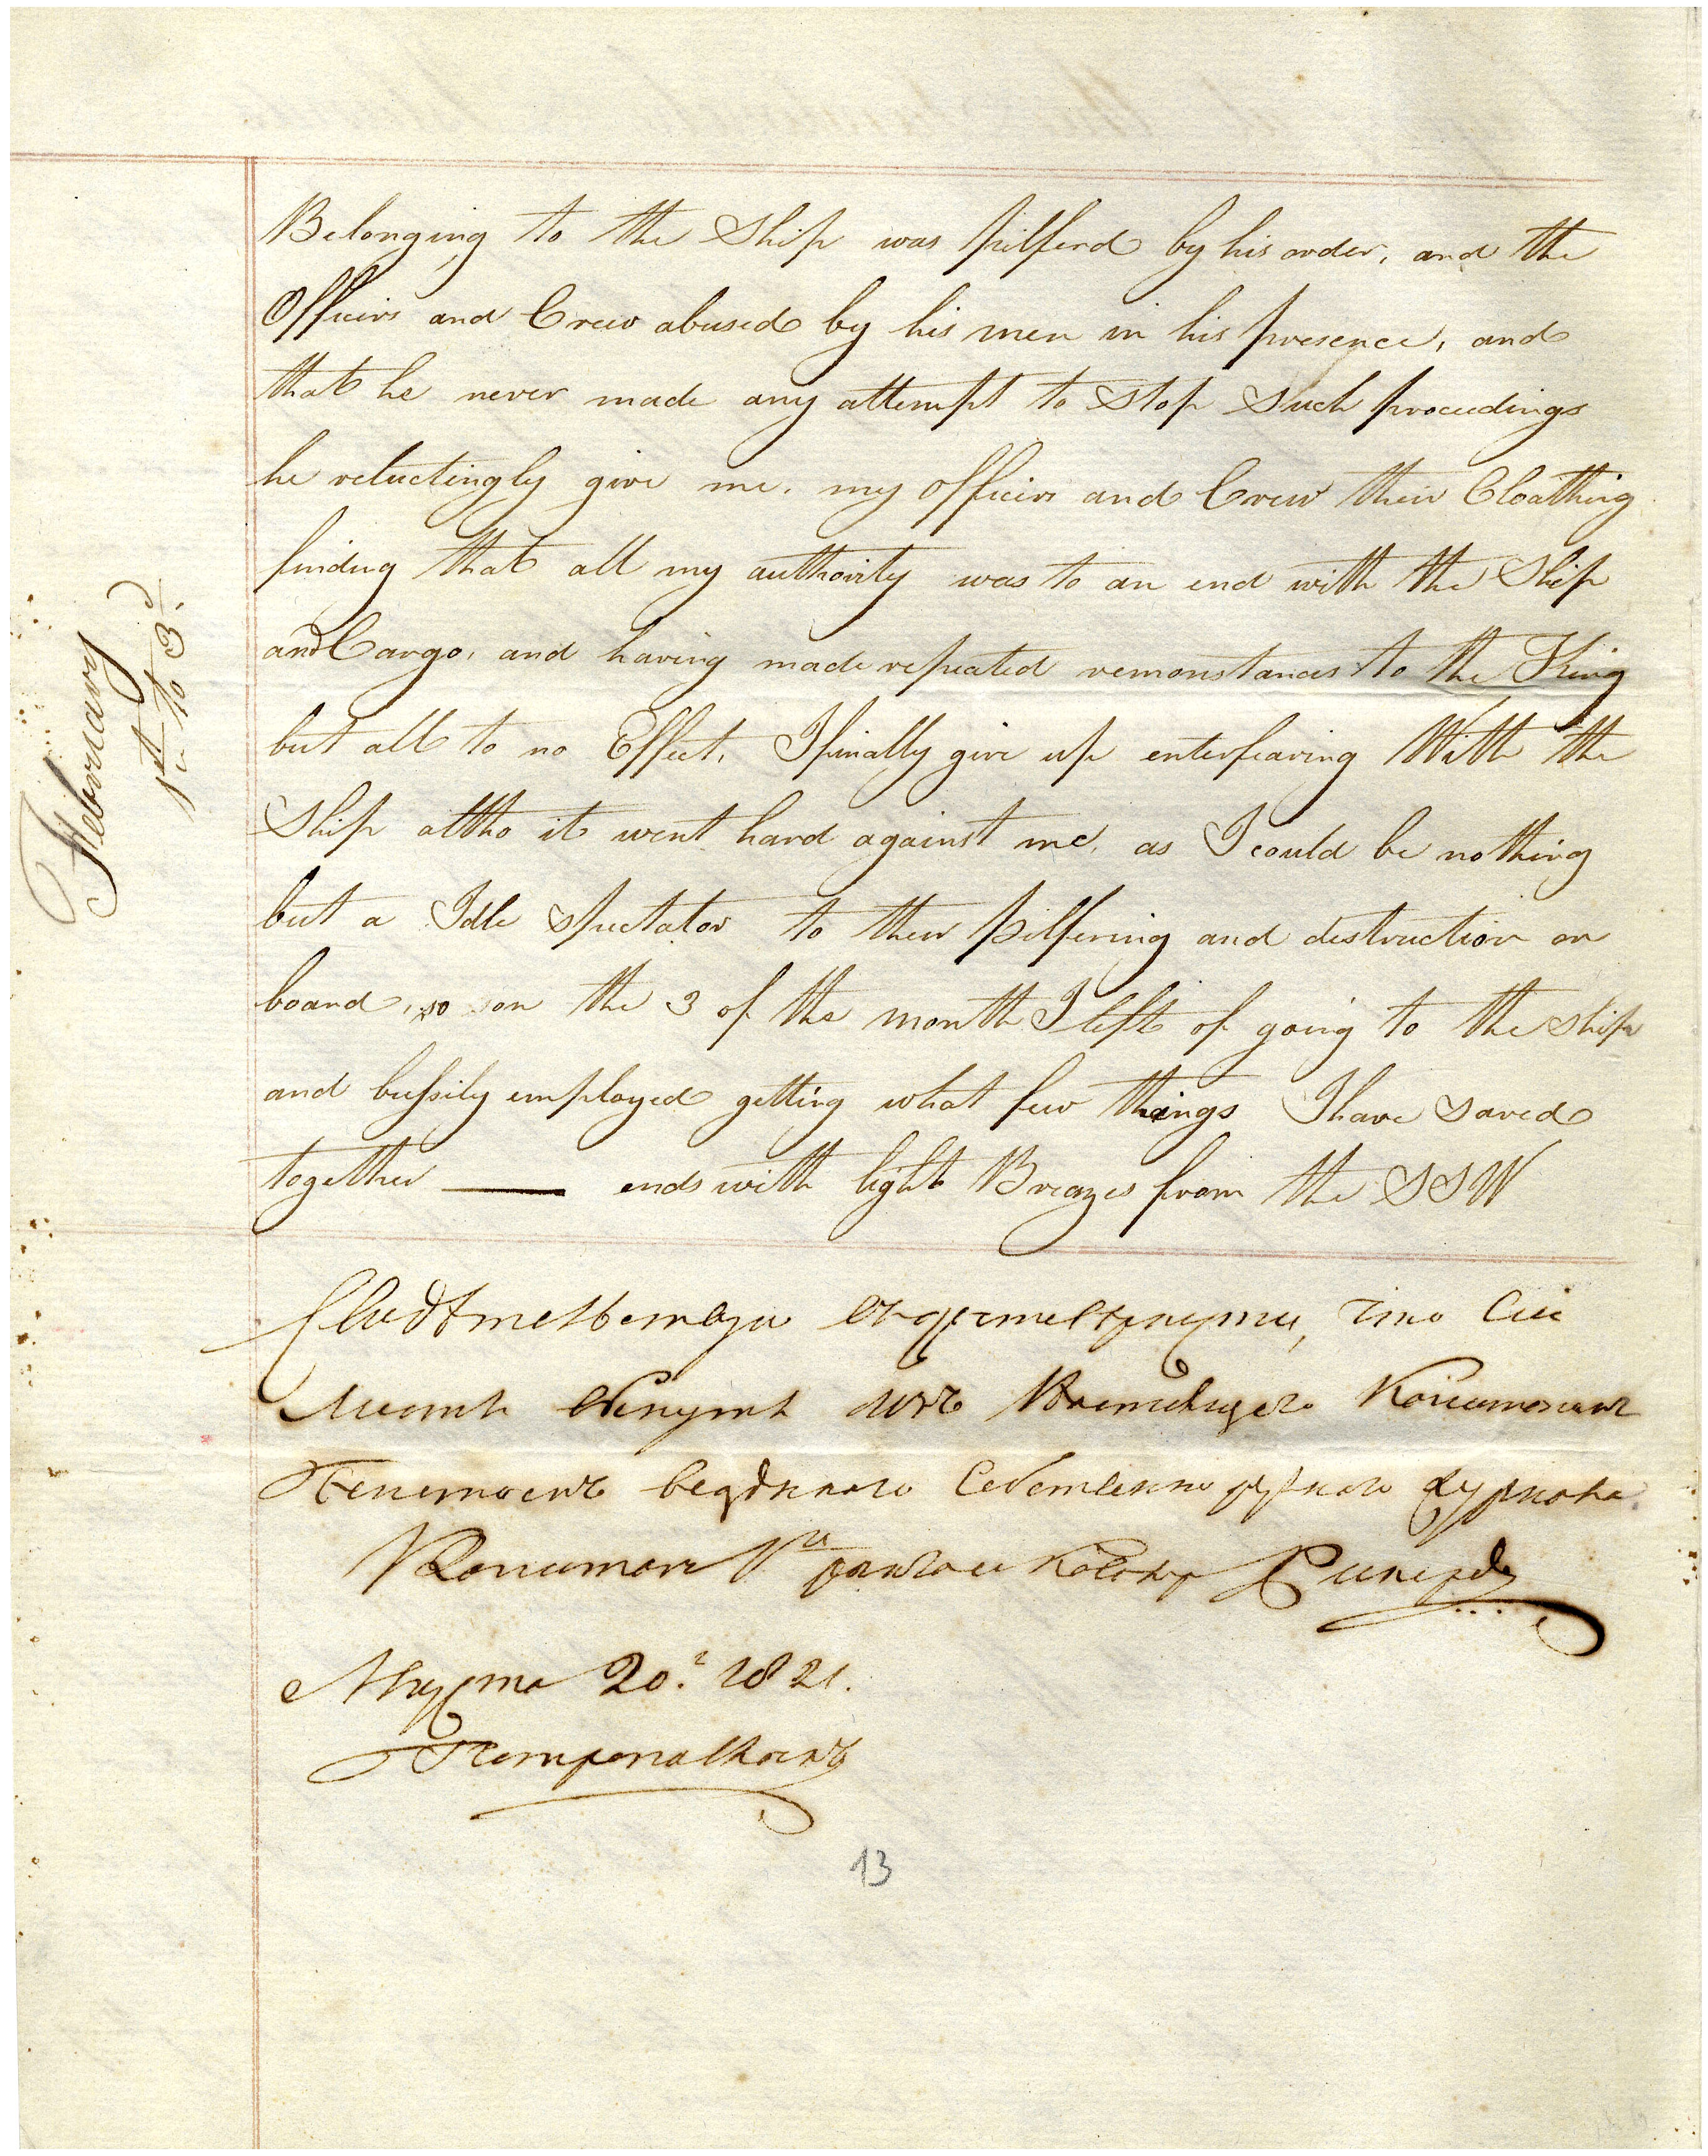 Belonging to the Ship was pilferd by his order, and the
Officirs and Crew abused by his men in his presence, and
that he never made any attempt to Stop Such procedings
he reluctingly give me. my officirs and Crew their Cloathing
finding that all my authority was to an end with the Ship
and Cargo, and having made repeated remonstances to the King
but all to no Effect, I finally give up enterfearing With the
Ship altho it went hard against me, as I could be nothing
but a Idle Spectator to their pilfering and destruction on
board, so on the 3 of the month I left of going to the Ship
and bussily employed getting what few things I have saved
together — ends with light Breazes from the SSW
February
1st to 3d
Свидѣтельствую что Сей
Листъ
Пенитоемъ веденнаго Собственно журнала
Капитан Рикордъ
Августа 20. 1821.
Петропавловскъ
13